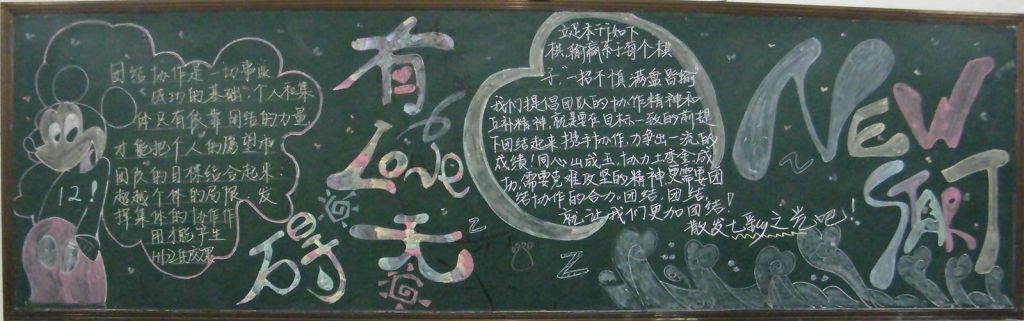 团结协作是一切事业
成功的基础，个人和集
体只有依靠团结的力量，
才能把个人的愿望和
团队的目标结合起来，
超越个体的局限，发
挥集体的协作作
用才能产生
12!
有
Love
无
碍
立足
棋，输赢系于每个棋
子，一招不慎满盘皆输
我们提倡团队的协作精神和
互补精神，就是要在目标一致的前提
下团结起来携手协作，力争出一流的
成绩！同心山成玉，协力土变金，成
功，需要克难攻坚的精神更需要团
结协作的合力。团结，团结！
就让我们更加团结！
散发七彩之光吧！
NEW
START